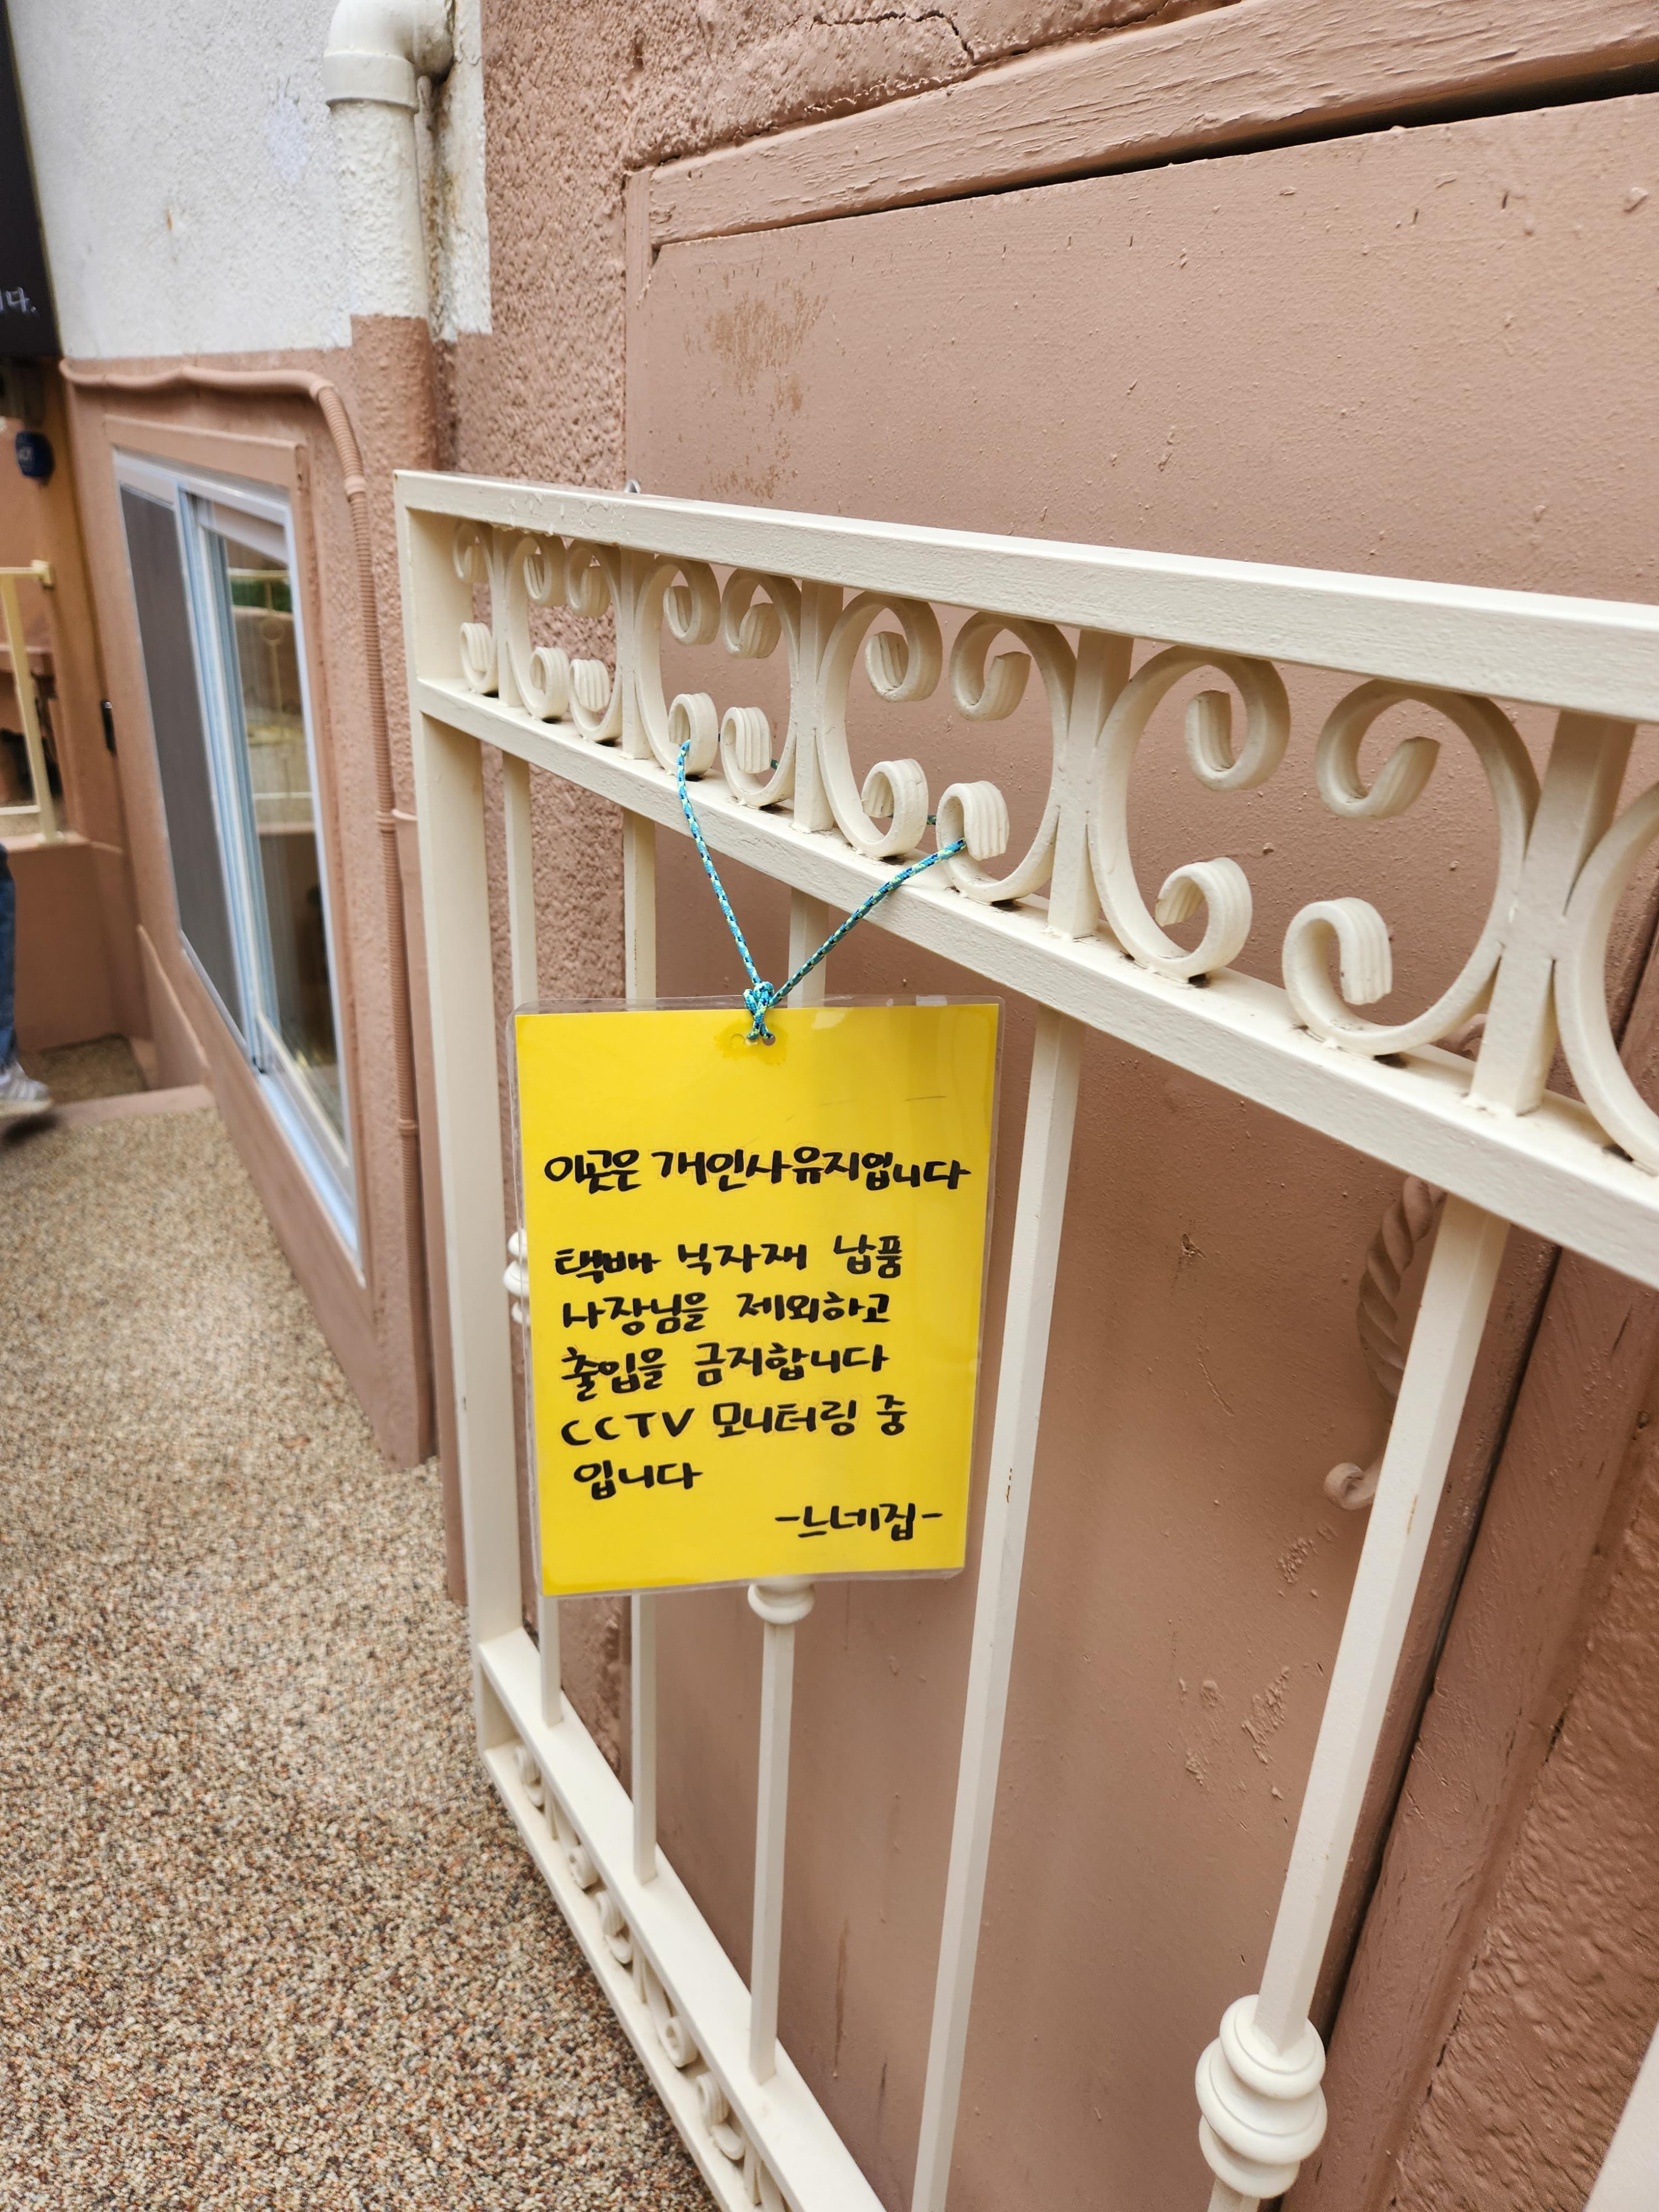 니다.
이곳은 개인사유지입니다
택배 식자재 납품
사장님을 제외하고
출입을 금지합니다
CCTV 모니터링 중
입니다
-느네집-